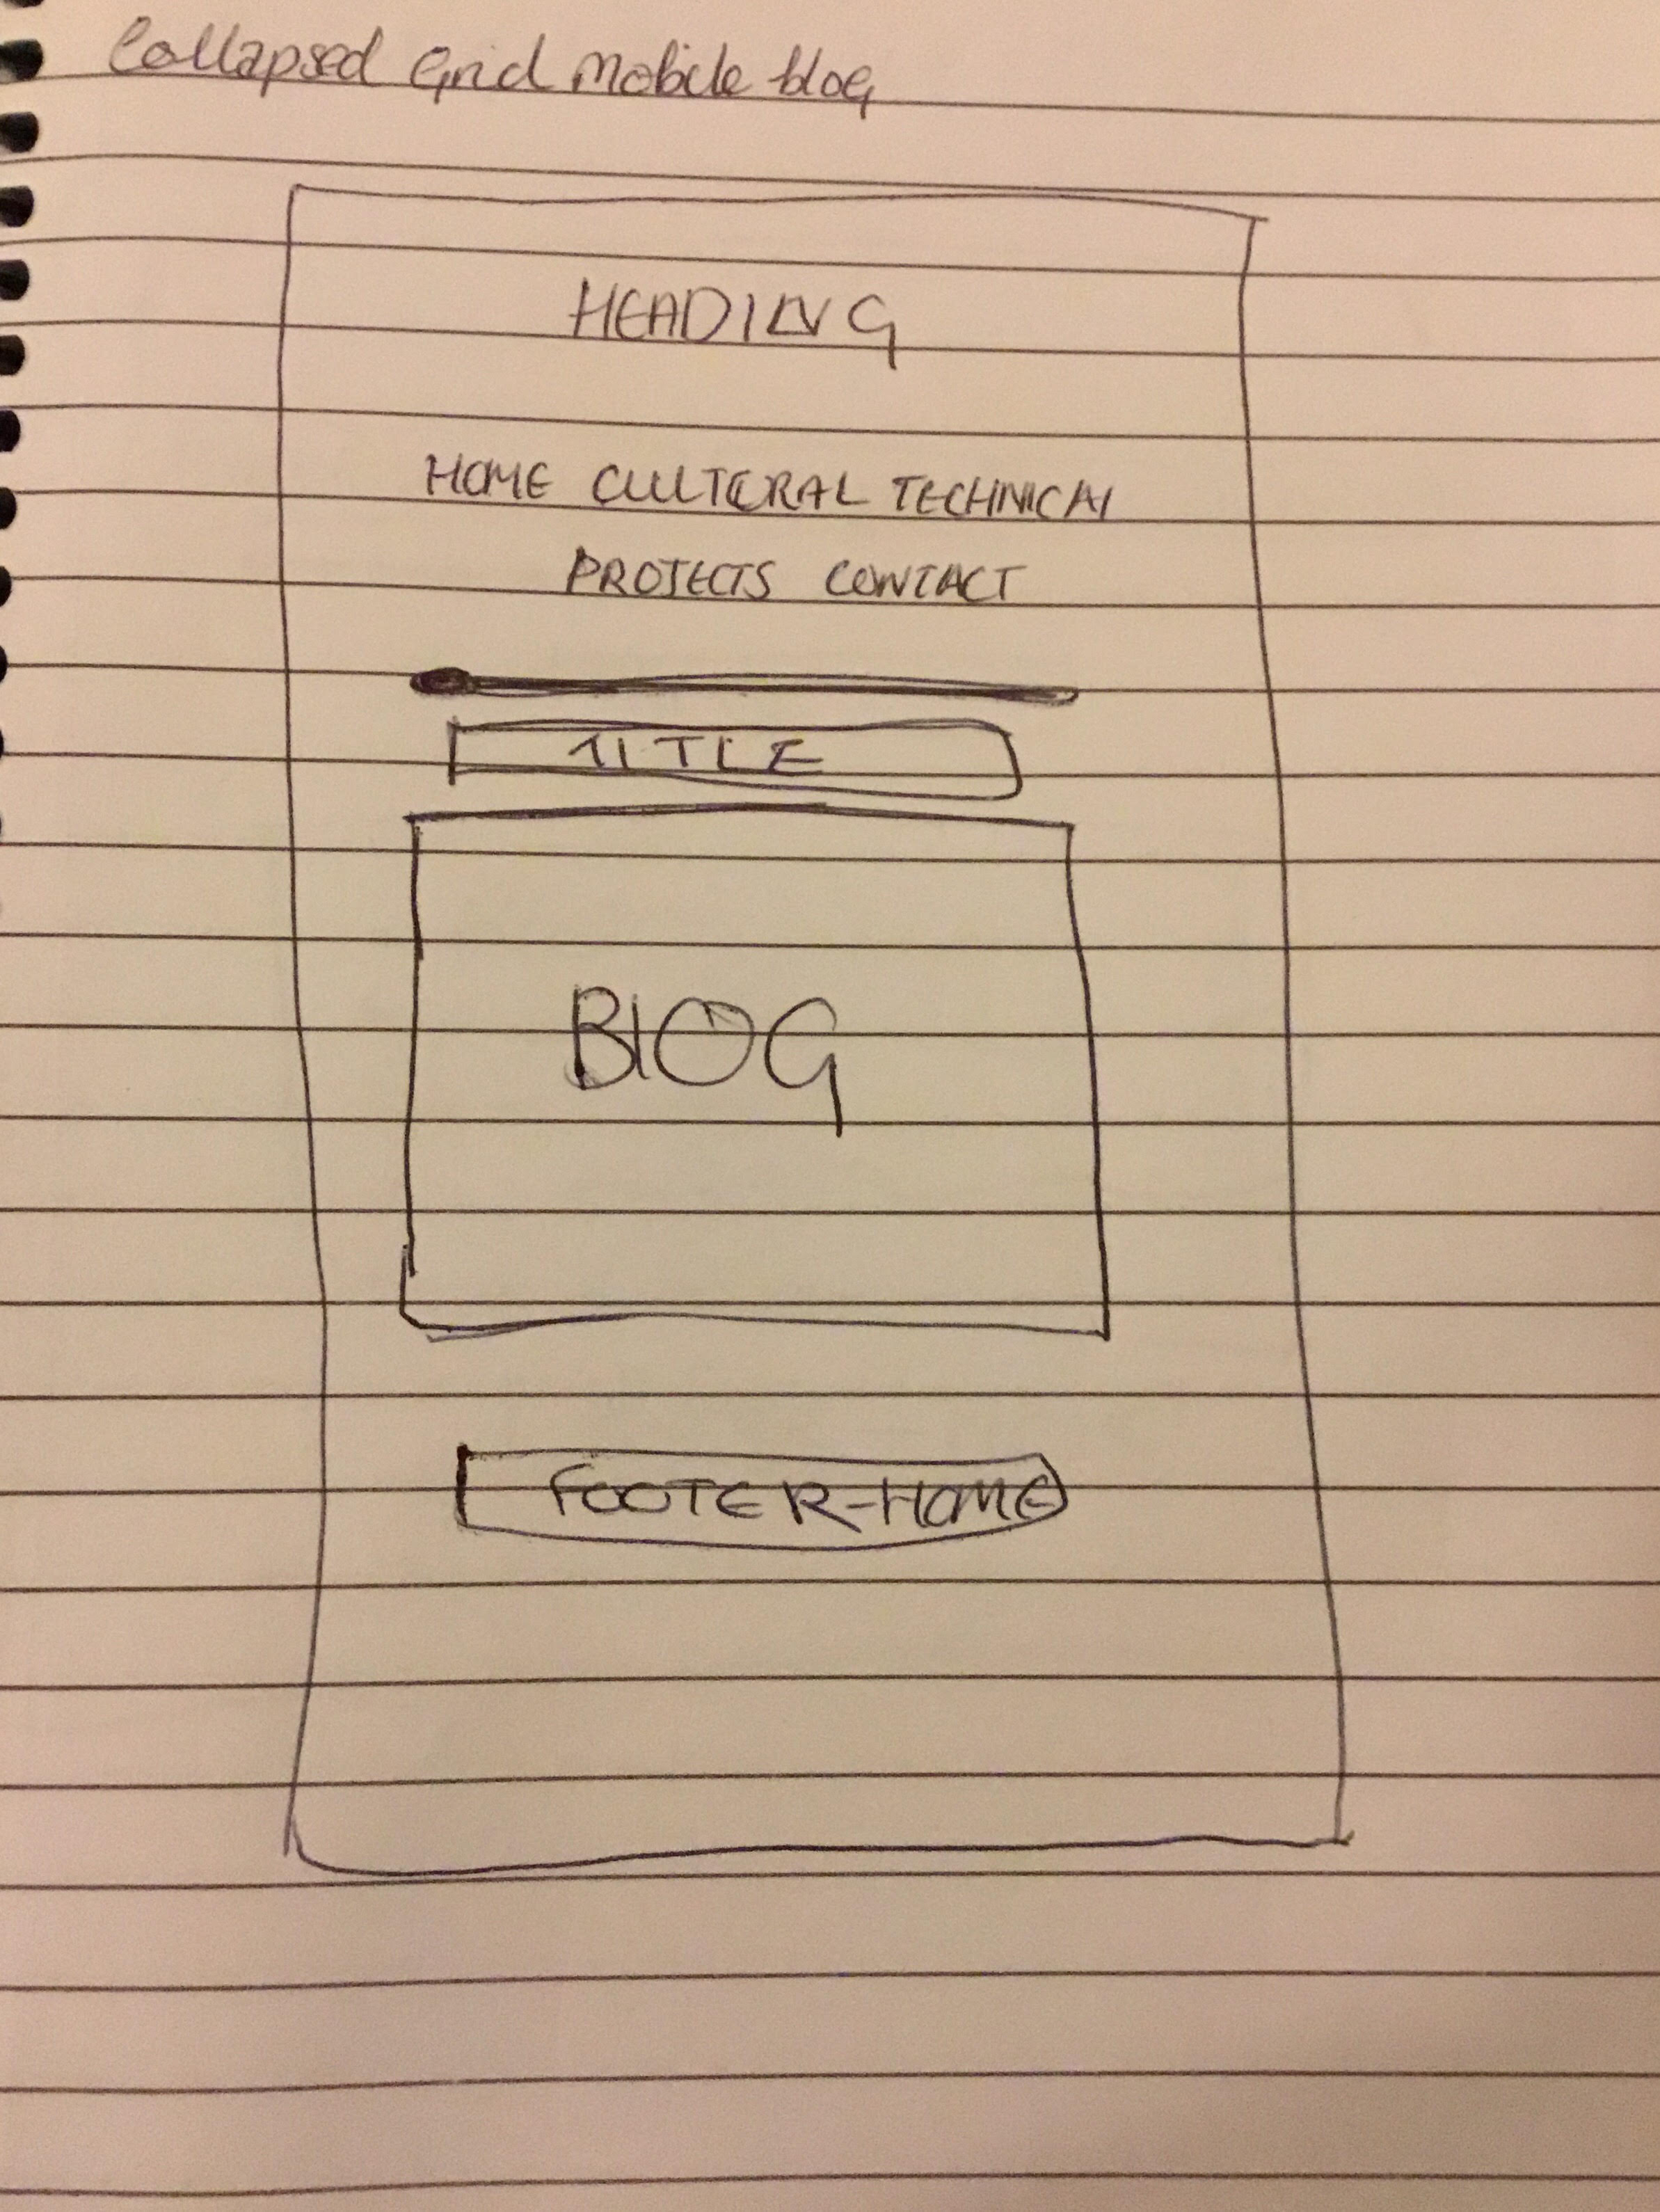 Collapsed Grid Mobile blog
HEADING
HOME CULTERAL TECHNICAl
PROJECTS CONTACT
TITLE
BlOG
FOOTER-HOME